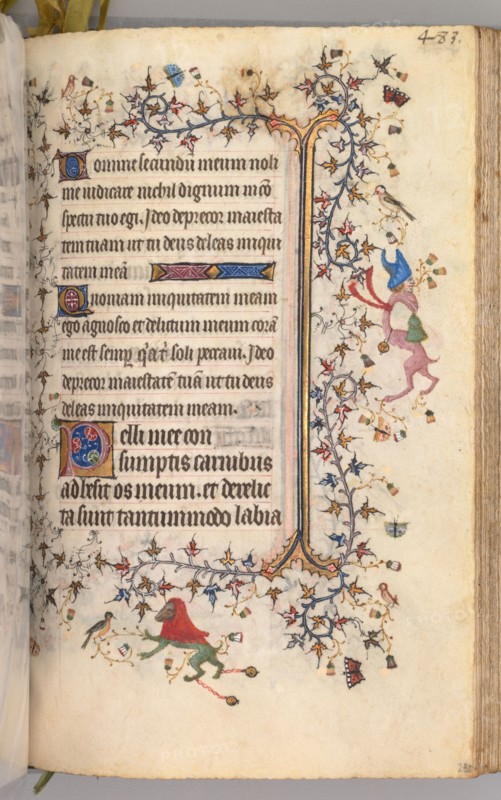 4-83.
Domine secundū meum noli
me iudicare nichil dignum in cō
spectu tuo egi. Ideo deprecor maiesta
tem tuam ut tu deus deleas iniqui
tatem meā
Quoniam iniquitatem meam
ego agnosco et delictum meum corā
me est semp soli peccaui. Ideo
deprecor maiestatē tuā ut tu deus
deleas iniquitatem meam.
Pelli mee con
sumptis carnibus
adhesit os meum. et derelic
ta sunt tantummodo labia